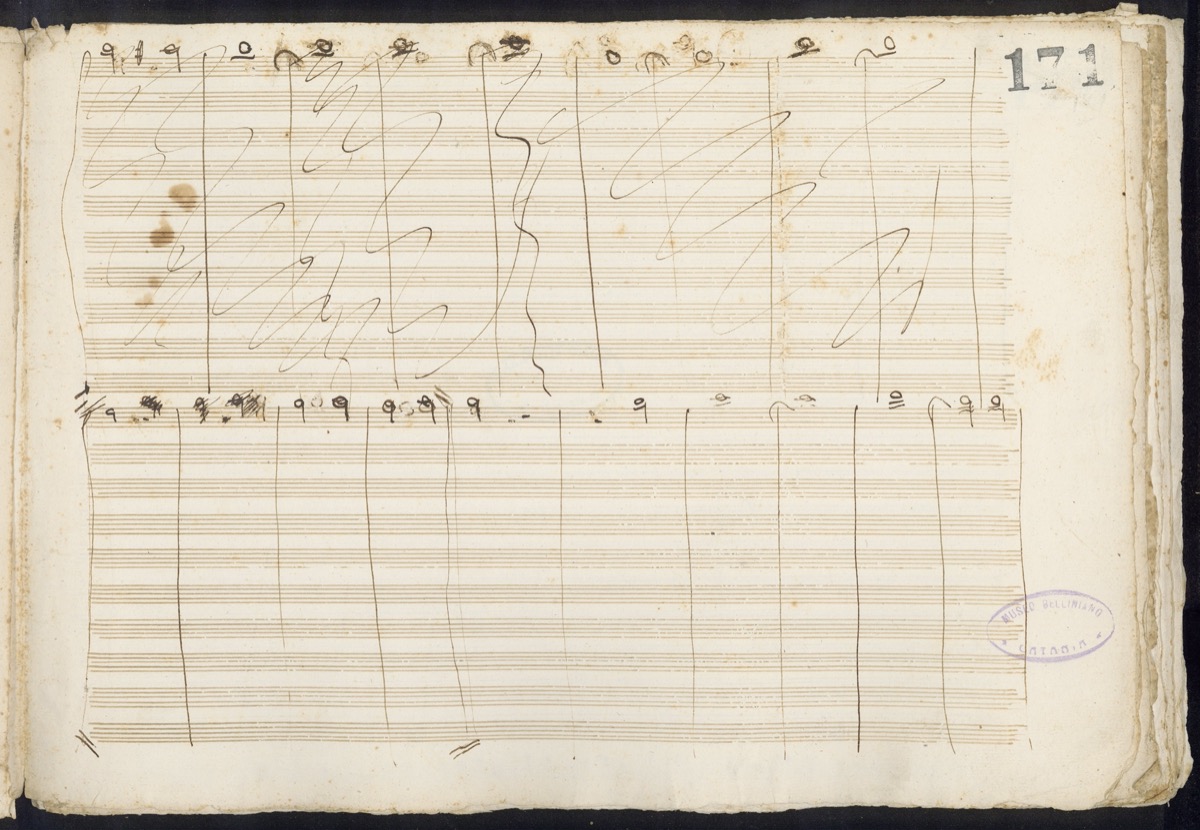 171
MUSEO BELLINIANO
CATANIA